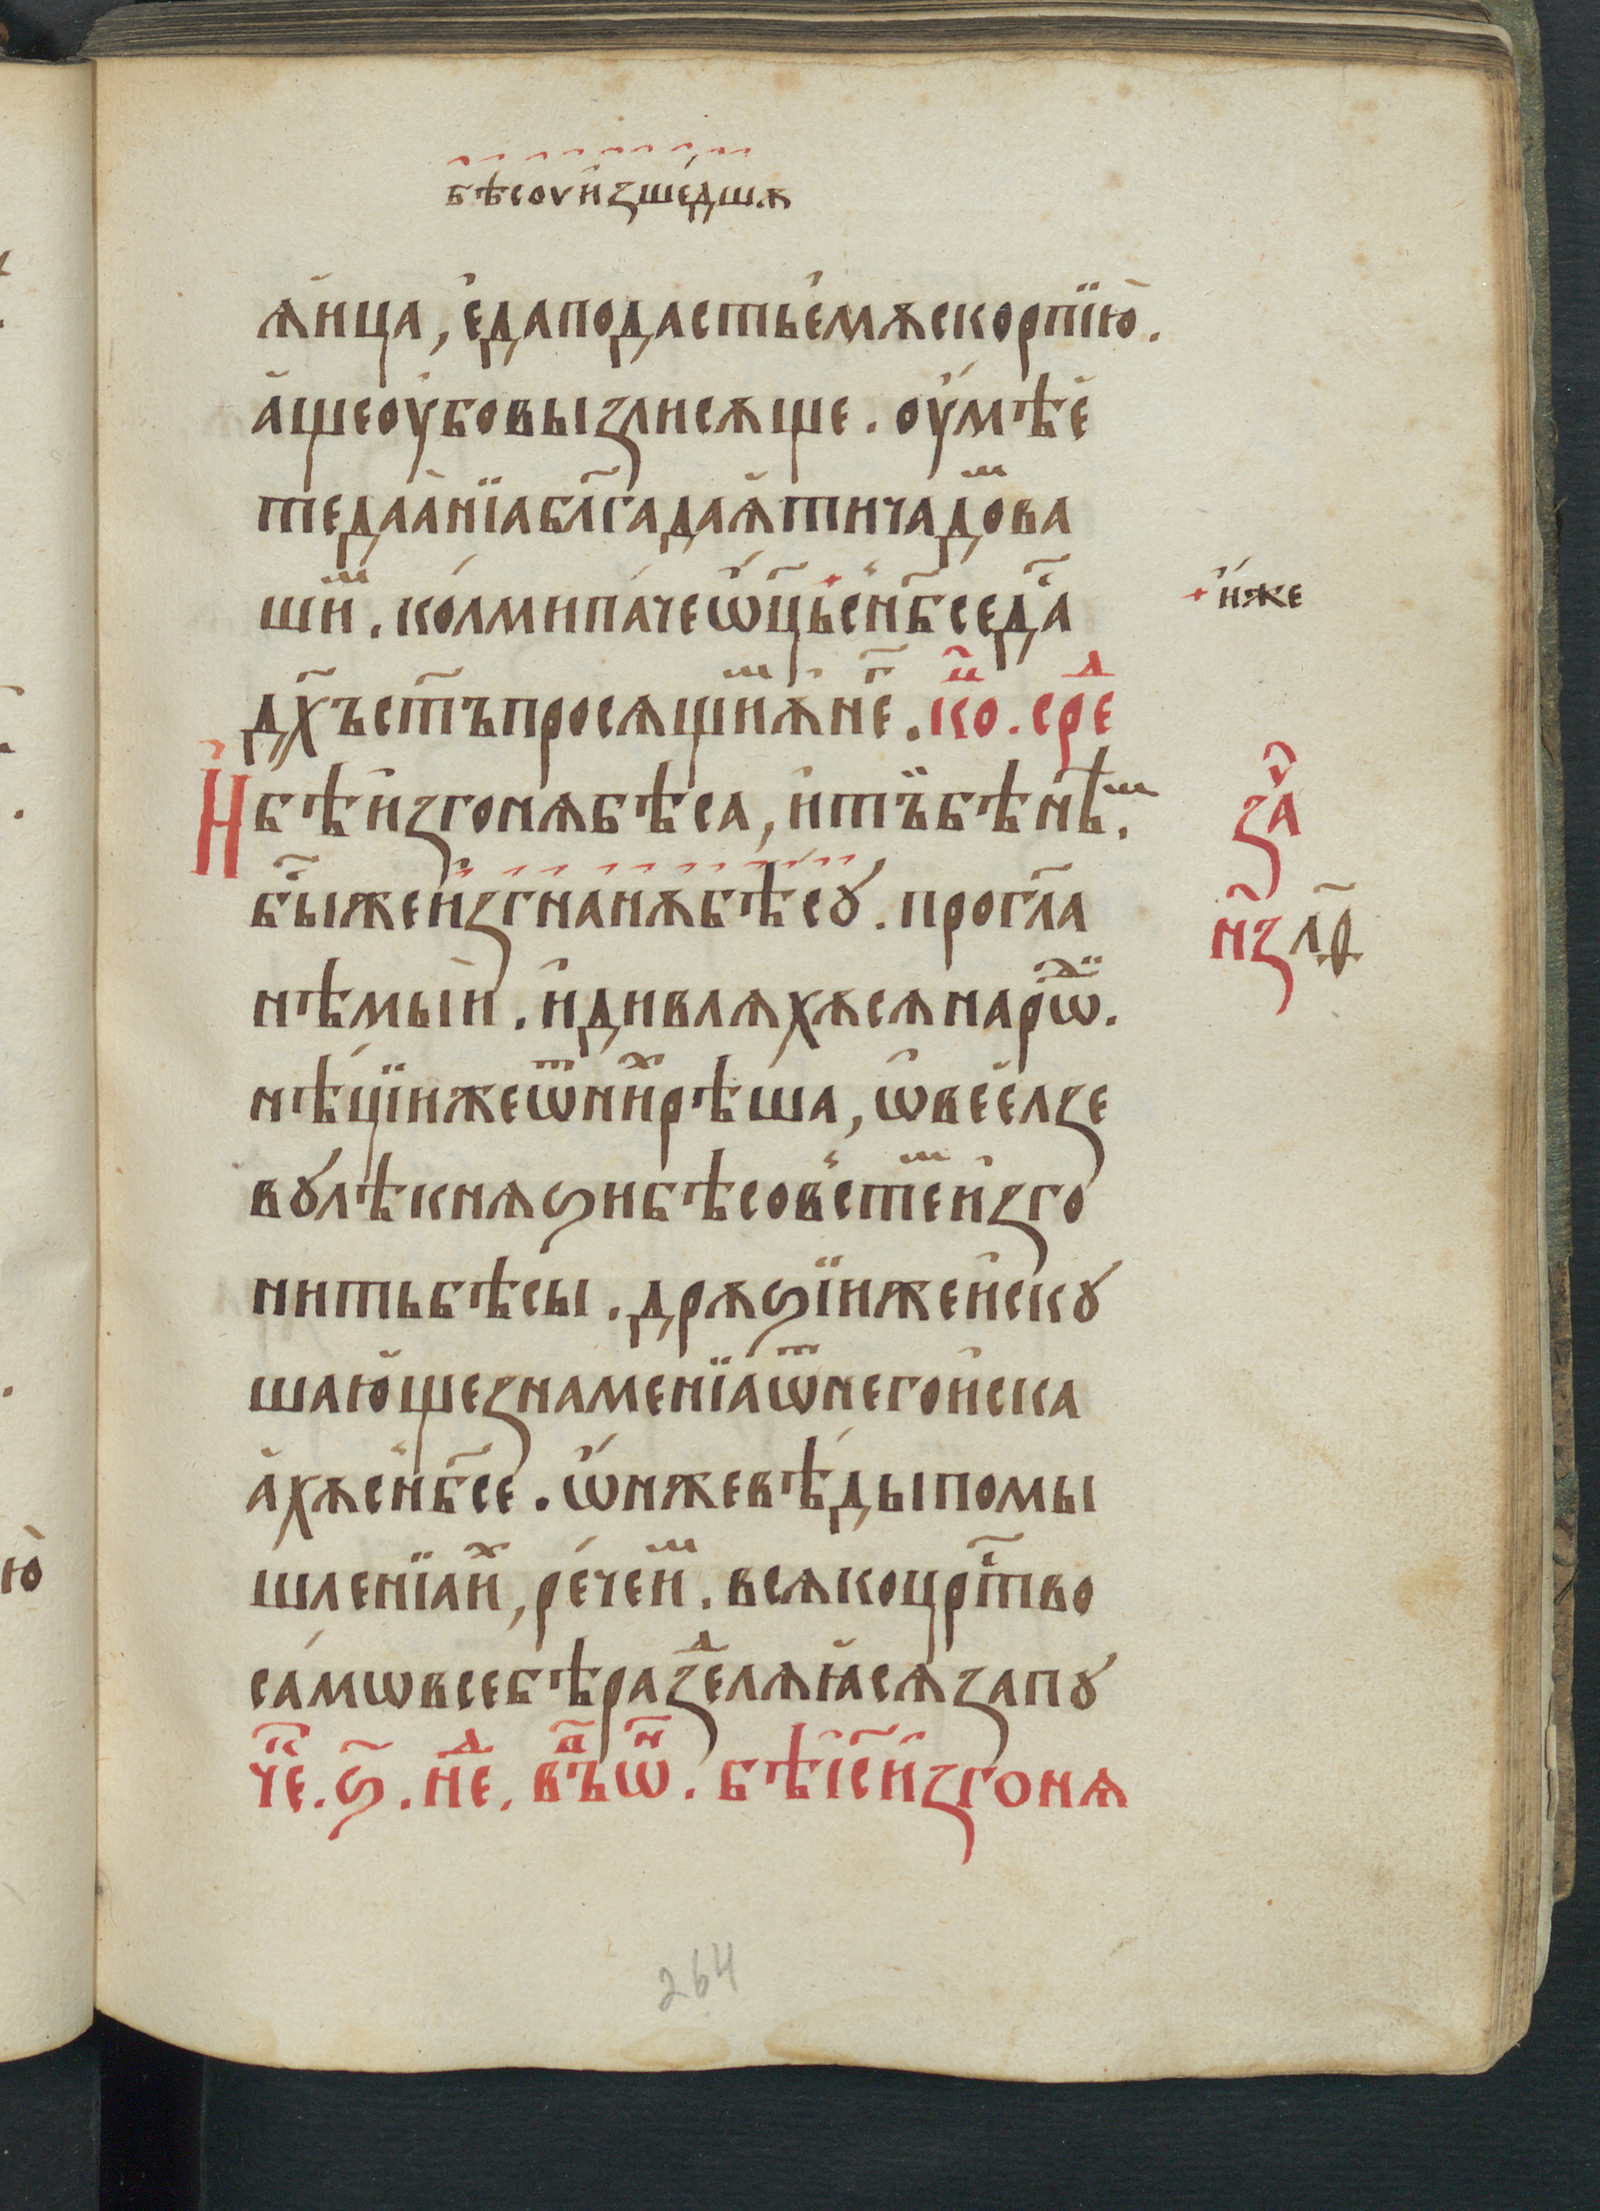 бѣсоу и҆зше́дшѫ
ѧ҆йца, е҆да пода́сть е҆мѫ скорпїю̀.
а҆́ще оу҆бо вы зли сѫще. оу҆мѣе҆
те даа҆нїа бл҃га даѧ҆ти чадѡⷨва
шиⷨ. ко́лми па́че ѡ҆ц҃ь и҆с нб҃се да҃
дх҃ъ ст҃ъ просѧщиⷨ ѧ҆ неⷢ҇. коⷰ҇. среⷣ
И҆
бѣ и҆згонѧ бѣса, и҆ тъй бѣ нѣⷨ.
бы҃ же и҆згнанѫ бѣсꙋ. прогл҃а
нѣмый. и҆ дивлѧхѫсѧ нароⷣѡ.
нѣ́ции же ѿ ниⷯ рѣша, ѡ҆ веел҆зе
вꙋ́лѣ кнѧѕи бѣсовⸯстеⷨ и҆зго
нить бѣсы. дрꙋѕїи же и҆скꙋ
шаю҆ще знаменїа ѿ него и҆ска
а҆хѫ с нб҃се. ѡ҆́н же вѣ́ды помы
шленїа иⷯ, ре́че иⷨ. всѧко црⷭ҇тво
са́мѡ в себѣ разⷣелѧѧ҆йсѧ запꙋ
чеⷦ҇. ѕ҃. неⷣ. въⷫ҇ ѡⷩ҇. бѣ і҆с҃ и҆згонѧ
и҆́же
заⷱ҇
н҃з
264